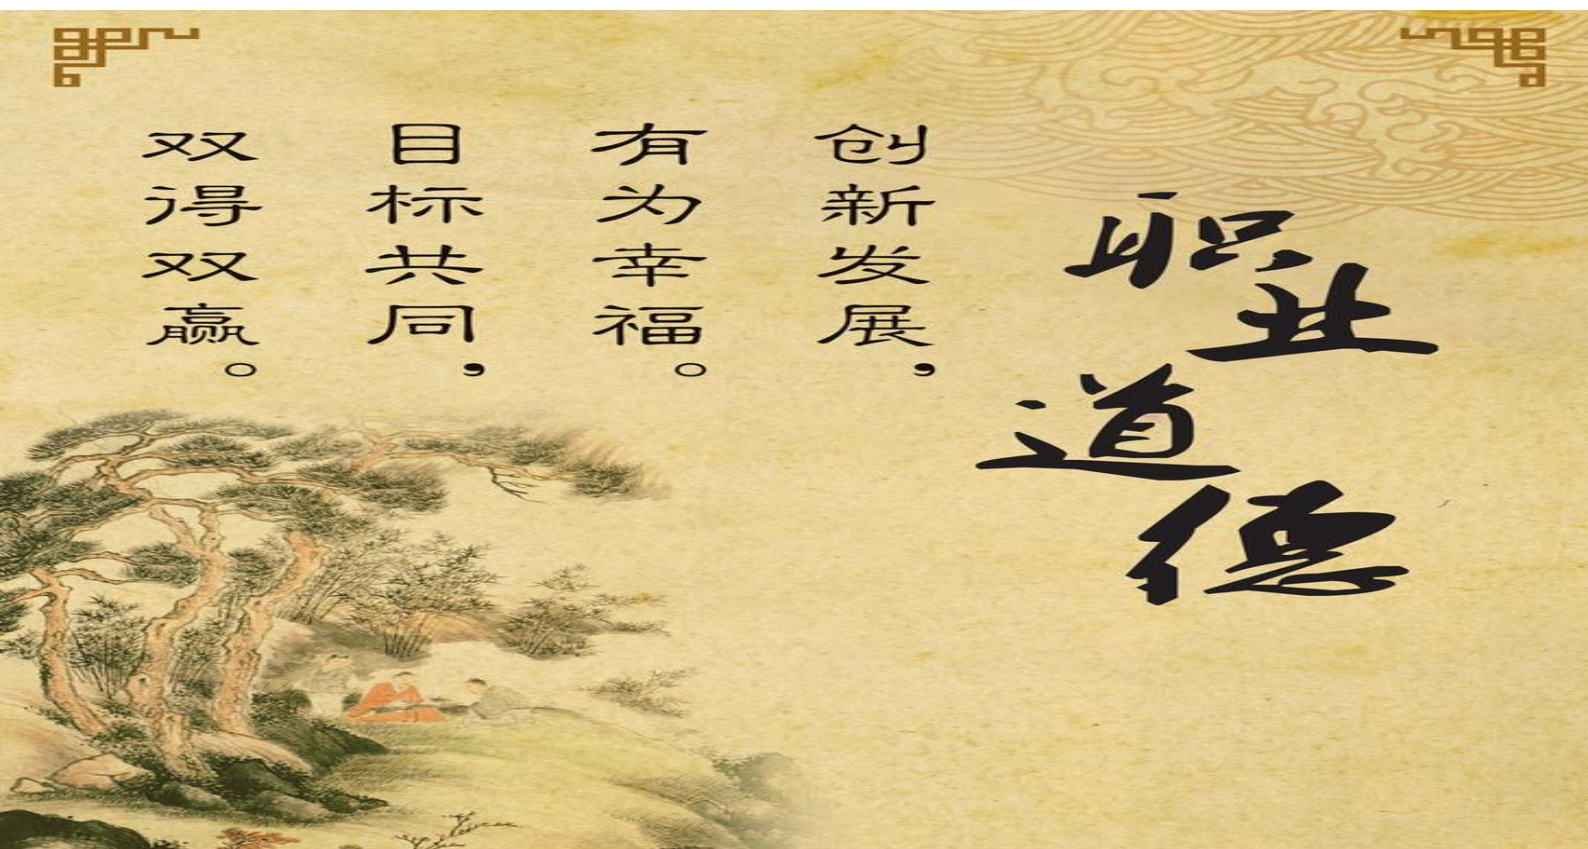 职业道德
创新发展，
有为幸福。
目标共同，
双得双赢。